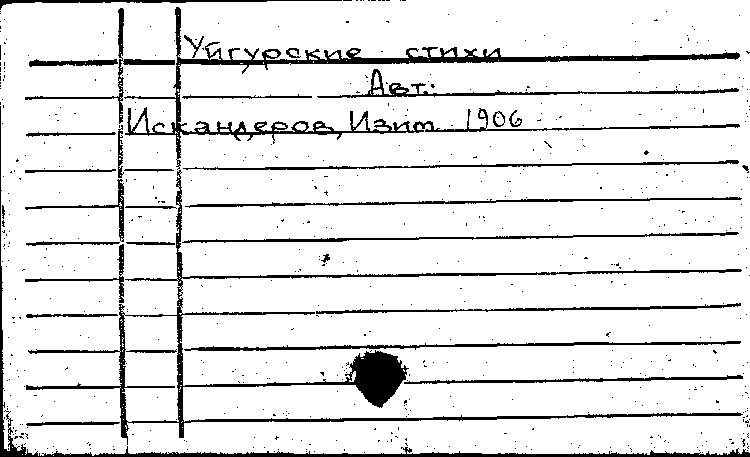 Уйгурские стихи
Авт.:
Искандеров, Изим 1906